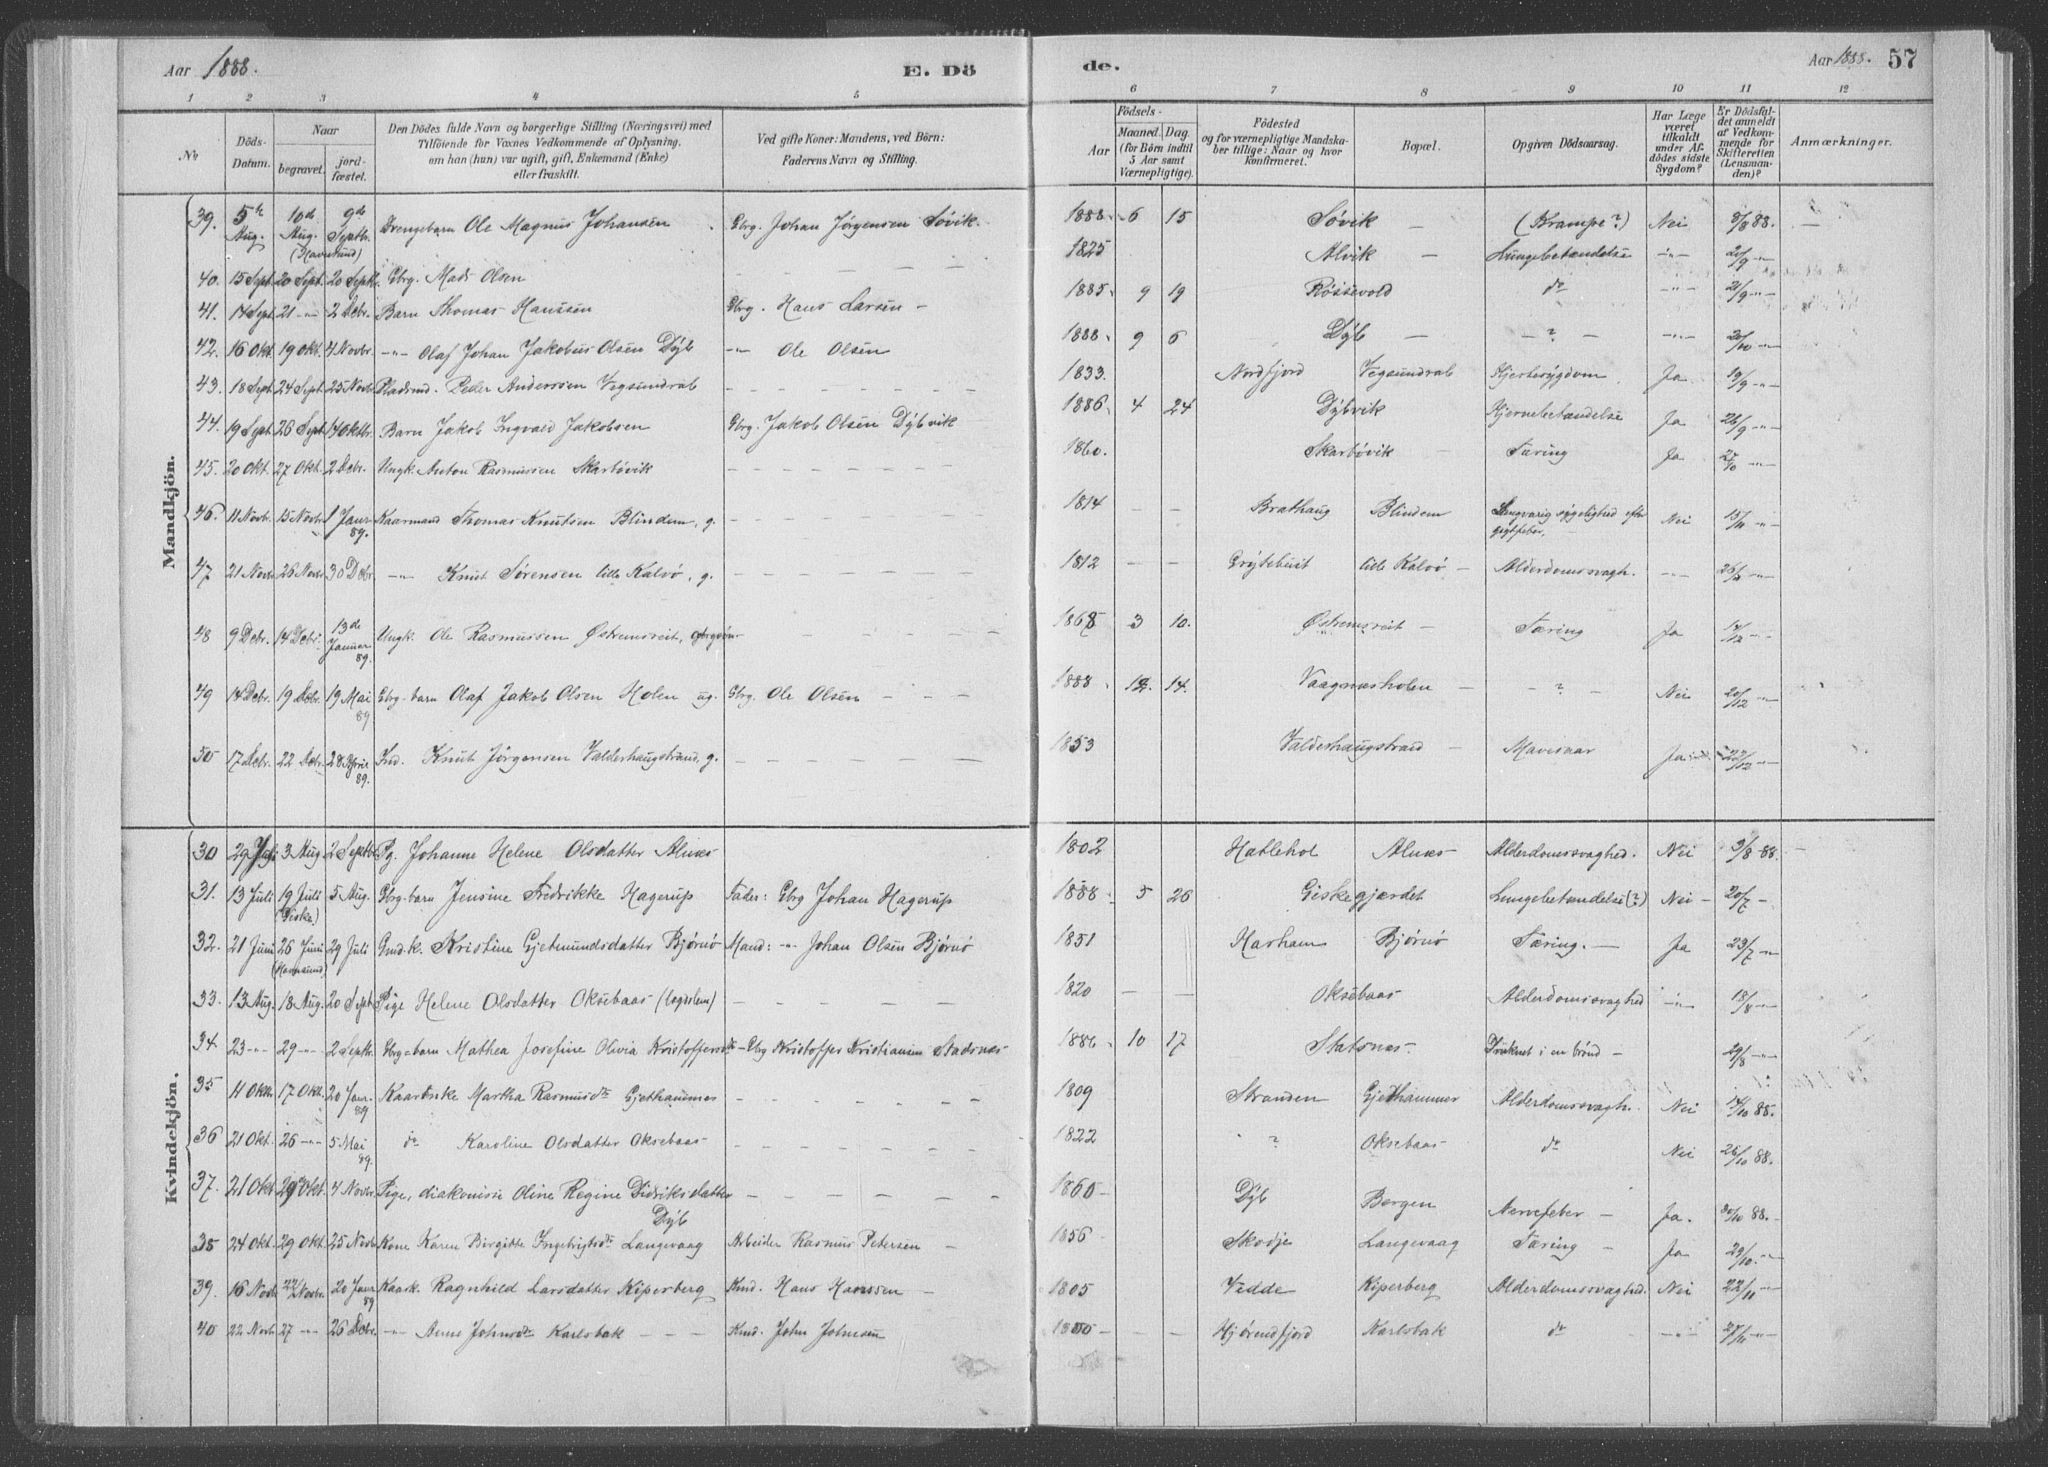 Aar 1888. E. Dö de. Aar 1888. 57
1 2 3 4 5 6 7 8 9 10 11 12
No Döds-Datum. Naar begravet. jord-fæstet. Den Dödes fulde Navn og borgerlige Stilling (Næringsvei) med Tilföiende for Voxnes Vedkommende af Oplysning, om han (hun) var ugift, gift, Enkemand (Enke) eller fraskilt. Ved gifte Koner: Mandens, ved Börn: Faderens Navn og Stilling. Födsels- Aar Maaned. Dag. (for Børn indtil 5 Aar samt Værnepligtige). Födested og for værnepligtige Mandskaber tillige: Naar og hvor konfirmeret. Bopæl. Opgiven Dödsaarsag. Har Læge været tilkaldt under Afdödes sidste Sygdom? Er Dödsfaldet anmeldt af Vedkommende for Skifteretten (Lensmanden)? Anmærkninger.
Mandkjön.
39. 5te Aug. 10de Aug. (Havnsund) 9de Septbr. Drengebarn Ole Magnus Johansen Gbrg. Johan Jørgensen Søvik. 1888. 6 15 Søvik — (Krampe?) Nei 8/8 88. —
40. 15 Sept. 20 Sept. 20 Septb. Gbrg. Mads Olsen — — — — 1825 Alvik — Lungebetændelse -"- 20/9 -"-
41. 14 Sept. 21 -"- 2 Debr. Barn Thomas Hanssen Gbrg. Hans Larsen — 1885. 9 19 Røssevold do -"- 21/9 -"-
42. 16 Okt. 19 Okt. 4 Novbr. -"- Olaf Johan Jakobus Olsen Dyb -"- Ole Olsen 1888. 9 6 Dyb — — ? — -"- 20/10 -"-
43. 18 Sept. 24 Sept. 25 Novbr. Pladsmd. Peder Anderssen Vegsundral — — — — 1833. Nordfjord Vegsundral Hjertesygdom Ja 19/9 -"-
44. 19 Sept. 26 Sept. 14 Oktbr. Barn Jakob Ingvald Jakobsen Gbrg. Jakob Olsen Dybvik 1886. 4 24 Dybvik Hjernebetændelse Ja 26/9 -"-
45. 20 Okt. 27 Okt. 2 Debr. Ungk. Anton Rasmussen Skarbøvik — — — — 1860. Skarbøvik Tæring Ja 27/10 -"-
46. 11 Novbr. 15 Novbr. 1 Januar 89. Kaarmand Thomas Knutsen Blindem, g. — — — — 1814 — — Brathaug Blindem Langvarig sygelighed efter gigtfeber, Nei 15/11 -"-
47 21 Novbr. 26 Novbr. 30 Debr. -"- Knut Sørensen lille Kalvø, g. — — — — 1812 — — Grytebust lille Kalvø Alderdomssvagh. -"- 26/11 -"-
48 9 Debr. 14 Debr. 13de Januar 89. Ungk. Ole Rasmussen Østremsreit, — — — — 1868 3 10. Østremsreit — Tæring Ja 14/12 -"-
49 14 Debr. 19 Debr. 19 Mai 89 Gbrg-barn Olaf Jakob Olsen Holen ug. Gbrg. Ole Olsen — — — 1888 12. 14. Vaagnæsholen — — ? — Nei 20/12 -"-
50 17 Debr. 22 Debr. 28 April 89. Ind. Knut Jørgensen Valderhaugstrand, g. — — — — 1853 Valderhaugstrand — Mavesaar Ja 22/12 -"-
Kvindekjön.
30 29 Juli 3 Aug. 2 Septbr. Pg. Johanne Helene Olsdatter Alnæs 1802 Hatlehol Alnæs Alderdomssvaghed. Nei 3/8 88. —
31. 13 Juli 19 Juli (Giske) 5 Aug. Gbrg-barn Jensine Fredrikke Hagerup Fader: Gbrg Johan Hagerup 1888 5 26 Giskegjærdet Lungebetændelse (?) Nei — 20/7 —
32. 21 Juni 26 Juni (Havnsund) 29 Juli Gmd.k. Kristine Gjetmundsdatter Bjørnø Mand: -"- Johan Olsen Bjørnø 1851 Harham Bjørnø Tæring. — Ja 23/7 -"-
33. 13 Aug. 18 Aug. 20 Septb. Pige Helene Olsdatter Oksebaas (legdslem) — — — — 1820 — — Oksebaas Alderdomssvaghed -"- 18/8 -"-
34. 23 -"- 29 -"- 2 Septbr. Gbrg-barn Mathea Josefine Olivia Kristoffersdtr — Gbrg Kristoffer Kristiansen Stadsnes 1886 10 17 Statsnes. Druknet i en brønd — 29/8 -"-
35 11 Oktbr. 17 Okt. 20 Janr. 89 Kaarenke Martha Rasmusdtr Gjethammer — — — — 1809 Stranden Gjethammer Alderdomssvagh. Nei 14/10 88.
36 21 Okt. 26 -"- 5 Mai 89. do Karoline Olsdatter Oksebaas — — — — 1822 ? Oksebaas do Nei 26/10 88.
37. 21 Okt. 29 Okt. 4 Novbr. Pige, diakonisse Oline Regine Didriksdatter Dyb — — — — 1860 — Dyb Bergen Nervefeber — Ja. 30/10 88. —
38 24 Okt. 29 Okt. 25 Novbr. Kone Karen Birgitte Ingebrigtsdtr Langevaag Arbeider Rasmus Petersen — 1856 — Skodje Langevaag Tæring — Ja 29/10. -"-
39. 16 Novbr. 22 Novbr. 20 Janr 89 Kaark. Ragnhild Larsdatter Kiperberg Kmd. Hans Hanssen — 1805 Vedde Kiperberg Alderdomssvaghed. Nei 22/11 -"-
40 22 Novbr. 27 -"- 26 Debr. -"- Anne Johnsdtr Karlsbak — — — Kmd. John Johnsen 1800 — — — Hjørendfjord Karlsbak do -"- 27/11 -"-